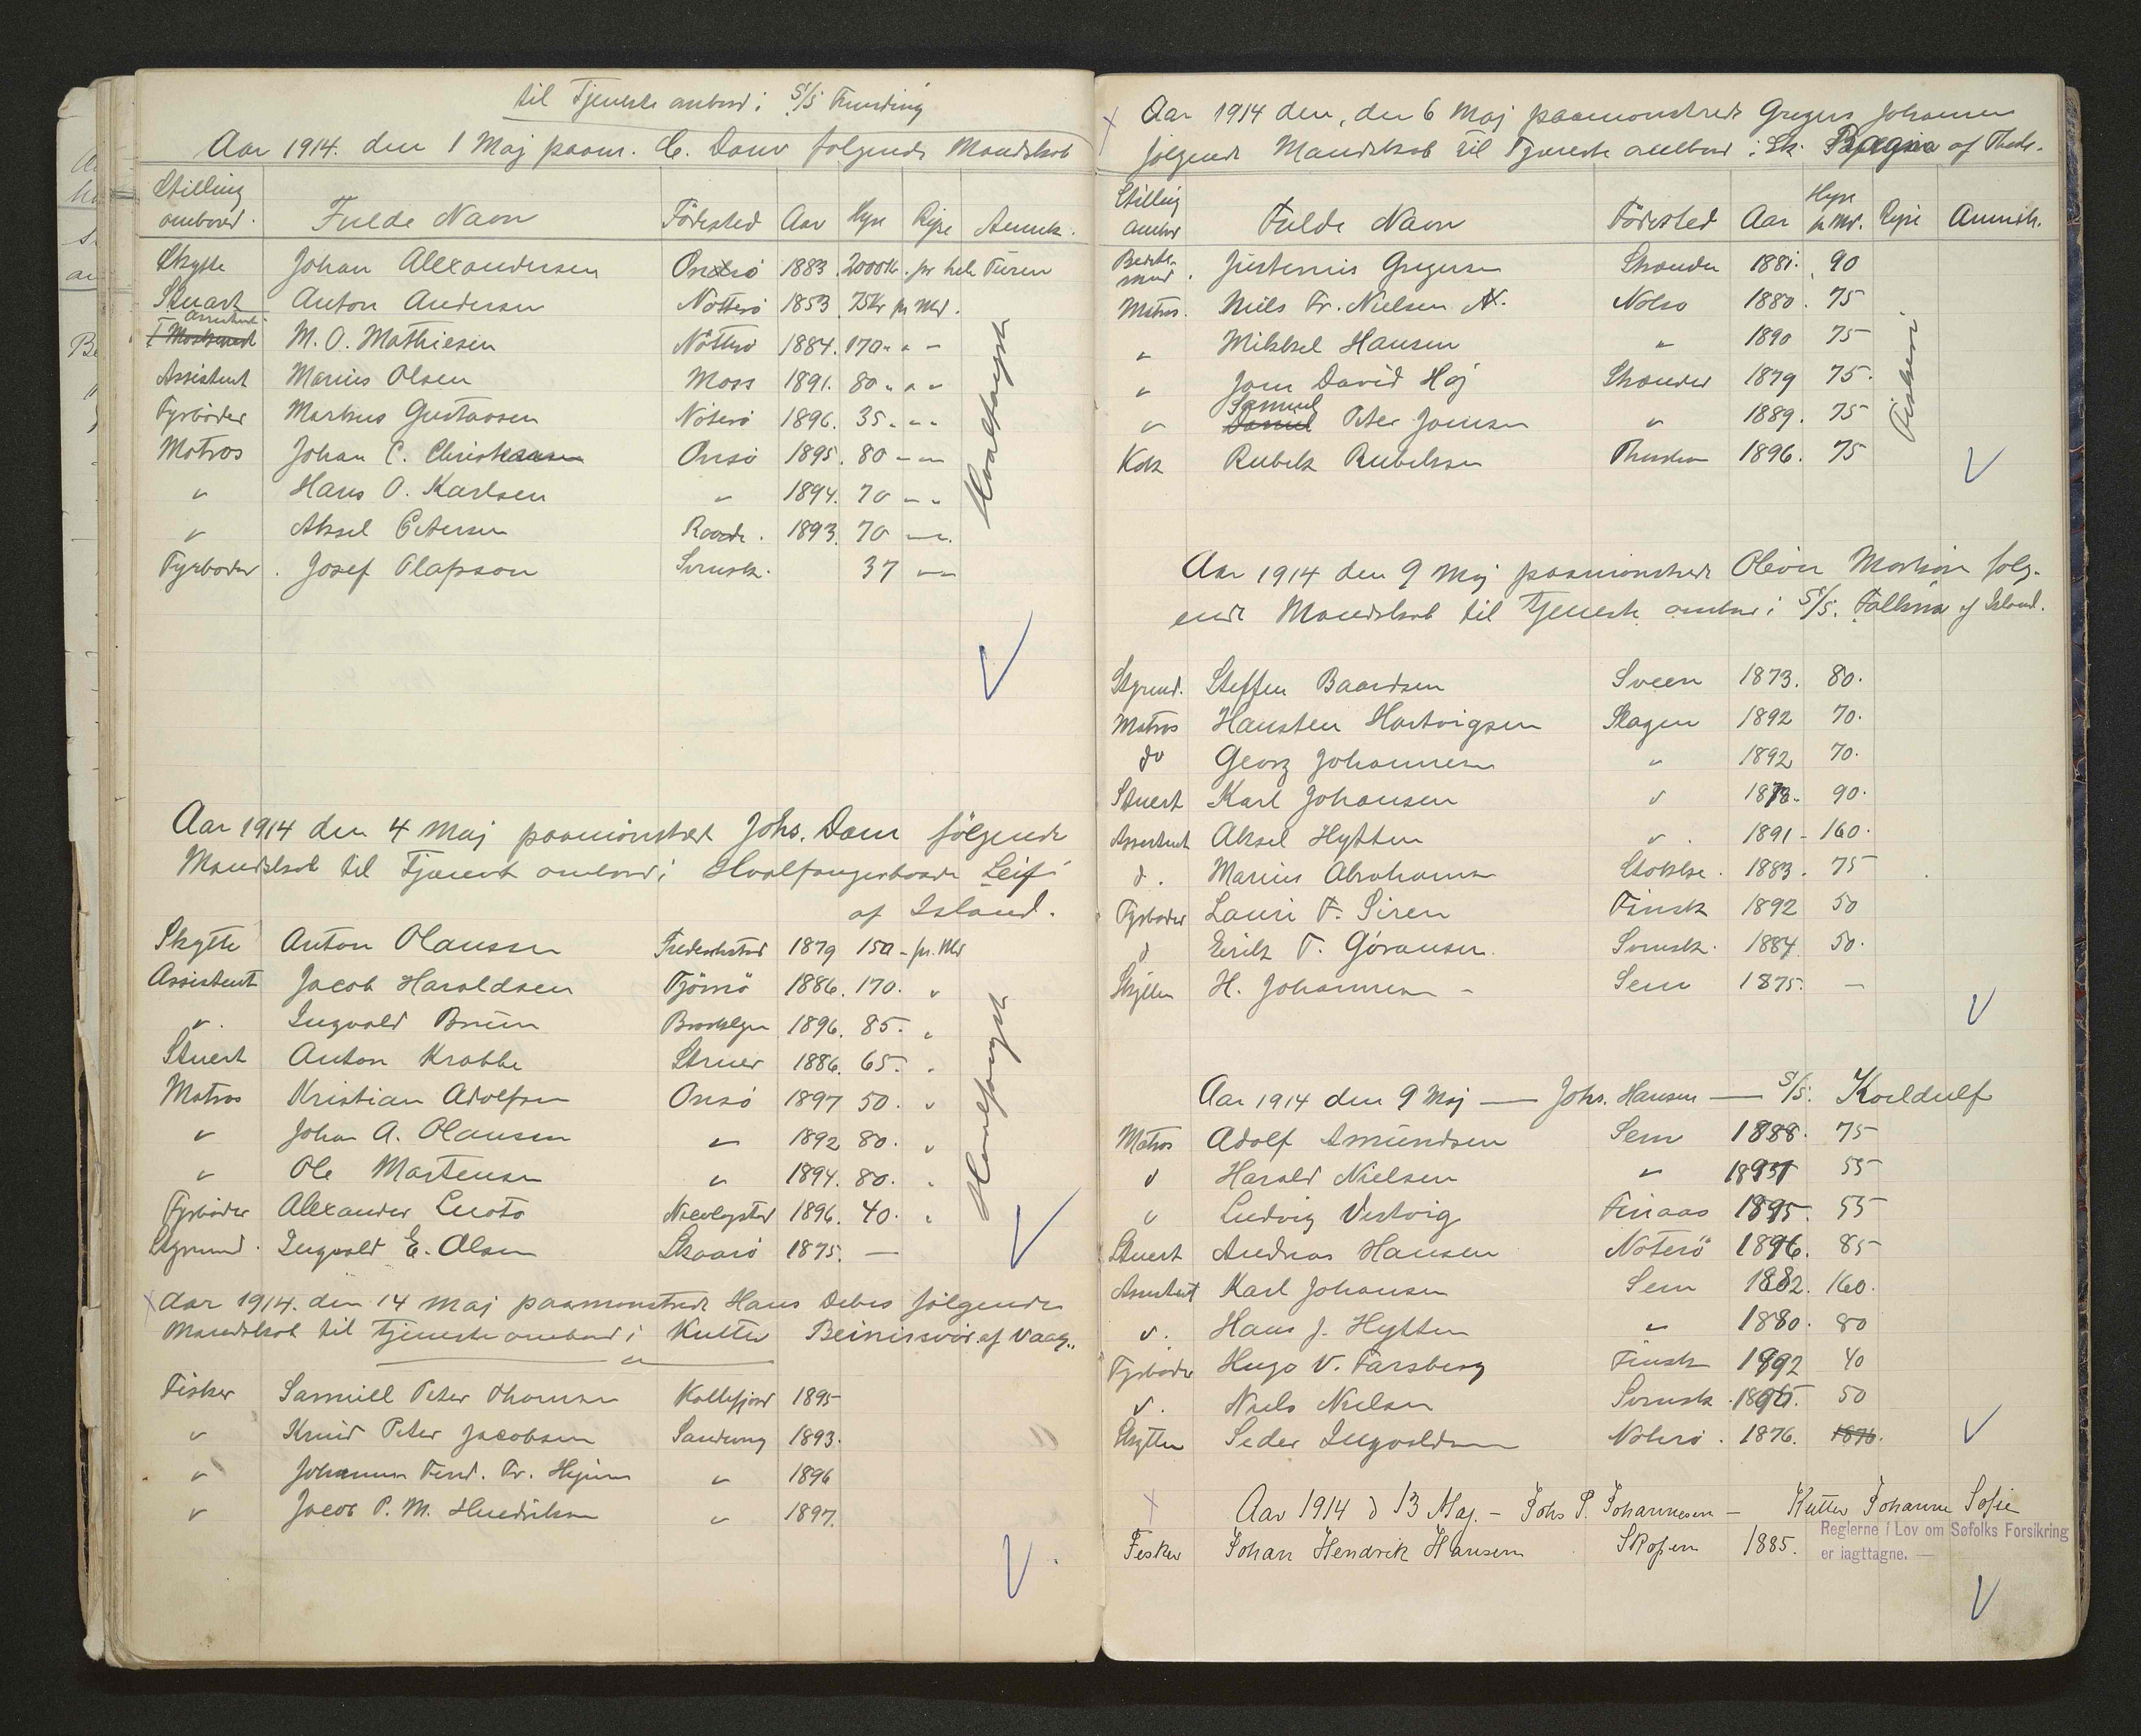 til Tjeneste ombord i S/S Funding
Aar 1914. den 1 Maj paam. C. Dam følgende Mandskab
Stilling ombord. Fulde Navn Födested Aar Hyre Rejse Anmk.
Skytte Johan Alexandersen Onsö 1883 2000 Kr. for hele Turen
Stuart Anton Andersen Nötterö 1853 75 Kr pr Md.
Assistent M. O. Mathiesen Nötterö 1884. 170 " " "
Assistent Marius Olsen Moss 1891. 80 " " "
Fyrböder Markus Gustavsen Nöterö 1896. 35 " " "
Matros Johan C. Christiansen Onsö 1895. 80 " "
" Hans O. Karlsen " 1894. 70 " "
" Aksel Petersen Raade. 1893. 70 " "
Fyrböder. Josef Olafsson Svensk. 37 " "
Hvalfangst
Aar 1914 den 4 Maj paamönstret Johs. Dam følgende
Mandskab til Tjeneste ombord i Hvalfangerbaade Leif
af Island.
Skytte Anton Olaussen Frederikstad 1879 150 - pr. Md
Assistent Jacob Haraldsen Tjömö 1886. 170. "
" Ingvald Bruun Brooklyn 1896. 85. "
Stuert Anton Krabbe Struer 1886. 65. "
Matros Kristian Adolfsen Onsö 1897 50. "
" Johan A. Olausen " 1892 80. "
" Ole Martensen " 1894. 80. "
Fyrböder Alexander Luoto 1896. 40. "
Styrmand. Ingvald E. Olsen Skaarö 1875. —
Hvalfangst
Aar 1914. den 14 Maj paamonstrede Hans Debes følgende
Mandskab til Tjeneste ombord i Kutter Beinisvör af Vaag.
Fisker Samuell Peter Thomsen Kollefjord 1895
" Knud Peter Jacobsen Sandvaag 1893.
" Johannes Ferd. Fr. " 1896
" Jacob P. M. Hendriksen " 1897.
Aar 1914 den, den 6 Maj paamonstrede Gregers Johansen
følgende Mandskab til Tjeneste ombord i Sk. af
Stilling ombord Fulde Navn Födested Aar Hyre pr Md. Rejse Anmk.
Bedste-mand. Justenius Gregersen Strender 1881. 90
Matros. Niels Fr. Nielsen Nolsö 1880. 75
" Mikkel Hansen " 1890 75
" Joen David Höj Strender 1879 75.
" Samuel Daniel Peter Joensen " 1889. 75
Kok Rubek Rubeksen Thorshavn 1896. 75
Fiskeri
Aar 1914 den 9 Maj paamonstrede Olivir Morthion følg-
ende Mandskab til Tjeneste ombord i S/S. Falkur af Island.
Styrmd. Steffen Baardsen Sveen 1873. 80.
Matros Hansten Hartvigsen Skagen 1892 70.
do Georg Johannesen " 1892 70.
Stuert Karl Johansen " 1878. 90.
Assistent Aksel Hytten " 1891 - 160.
d. Marius Abrahamsen Stokke. 1883. 75
Fyrböder Lauri F. Siren Finsk 1892 50
d Eirik T. Göransen. Svensk. 1884 50.
Skytten H. Johannesen - Sem 1875. —
Aar 1914 den 9 Maj — Johs. Hansen — S/S. Kveldulf
Matros Adolf Amundsen Sem 1888. 75
" Harald Nielsen " 55
" Ludvig Vestvig Finaas 1895. 55
Stuert Andreas Hansen Noterö 1896. 85
Assistent Karl Johansen Sem 1882. 160.
". Hans J. Hytten " 1880. 80
Fyrböder Hugo V. Farsberg Finsk 1892 40
". Niels Nielsen Svensk. 50
Skytten Peder Ingvaldsen Noterö. 1876. 1876.
Aar 1914 d 13 Maj. - Johs P. Johannesen - Kutter Johanne Sofie
Reglerne i Lov om Søfolks Forsikring
er iagttagne. —
Fisker Johan Hendrik Hansen Skopen 1885.